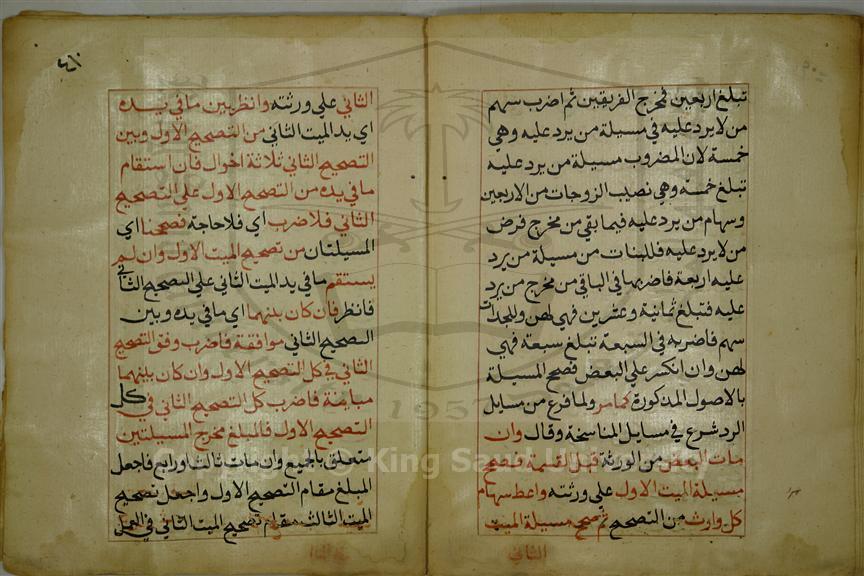 تبلغ اربعين فمخرج الفريقين ثم اضرب سهم
من لا يرد عليه في مسيلة من يرد عليه وهي
خمسة لان المضروب مسيلة من يرد عليه
تبلغ خمسة وهي نصيب الزوجات من الاربعين
وسهام من يرد عليه فيما بقي من مخرج فرض
من لا يرد عليه فللبنات من مسيلة من يرد
عليه اربعة فاضربها في الباقي من مخرج من يرد
عليه فتبلغ ثمانية وعشرين فهي لهن وللجدات
سهم فاضربه في السبعة تبلغ سبعة فهي
لهن وان انكسر علي البعض فصح المسيلة
بالاصول المذكورة كما مر ولما فرغ من مسايل
الرد شرع في مسايل المناسخة وقال وان
مات البعض من الورثة قبل القسمة فصحح
مسيلة الميت الاول علي ورثته واعط سهام
كل وارث من التصحيح ثم صحح مسيلة الميت
الثاني
الثاني علي ورثته وانظر بين ما في يده
اي يد الميت الثاني من التصحيح الاول وبين
التصحيح الثاني ثلاثة احوال فان استقام
ما في يده من التصحيح الاول علي التصحيح
الثاني فلا ضرب اي فلا حاجة فصحتا اي
المسيلتان من تصحيح الميت الاول وان لم
يستقم ما في يد الميت الثاني علي التصحيح الثاني
فانظر فان كان بينهما اي ما في يده وبين
التصحيح الثاني موافقة فاضرب وفق التصحيح
الثاني في كل التصحيح الاول وان كان بينهما
مباينة فاضرب كل التصحيح الثاني في كل
التصحيح الاول فالمبلغ مخرج المسيلتين
متعلق بالجميع وان مات ثالث او رابع فاجعل
المبلغ مقام التصحيح الاول واجعل تصحيح
الميت الثالث مقام تصحيح الميت الثاني في العمل
1957
King Saud University